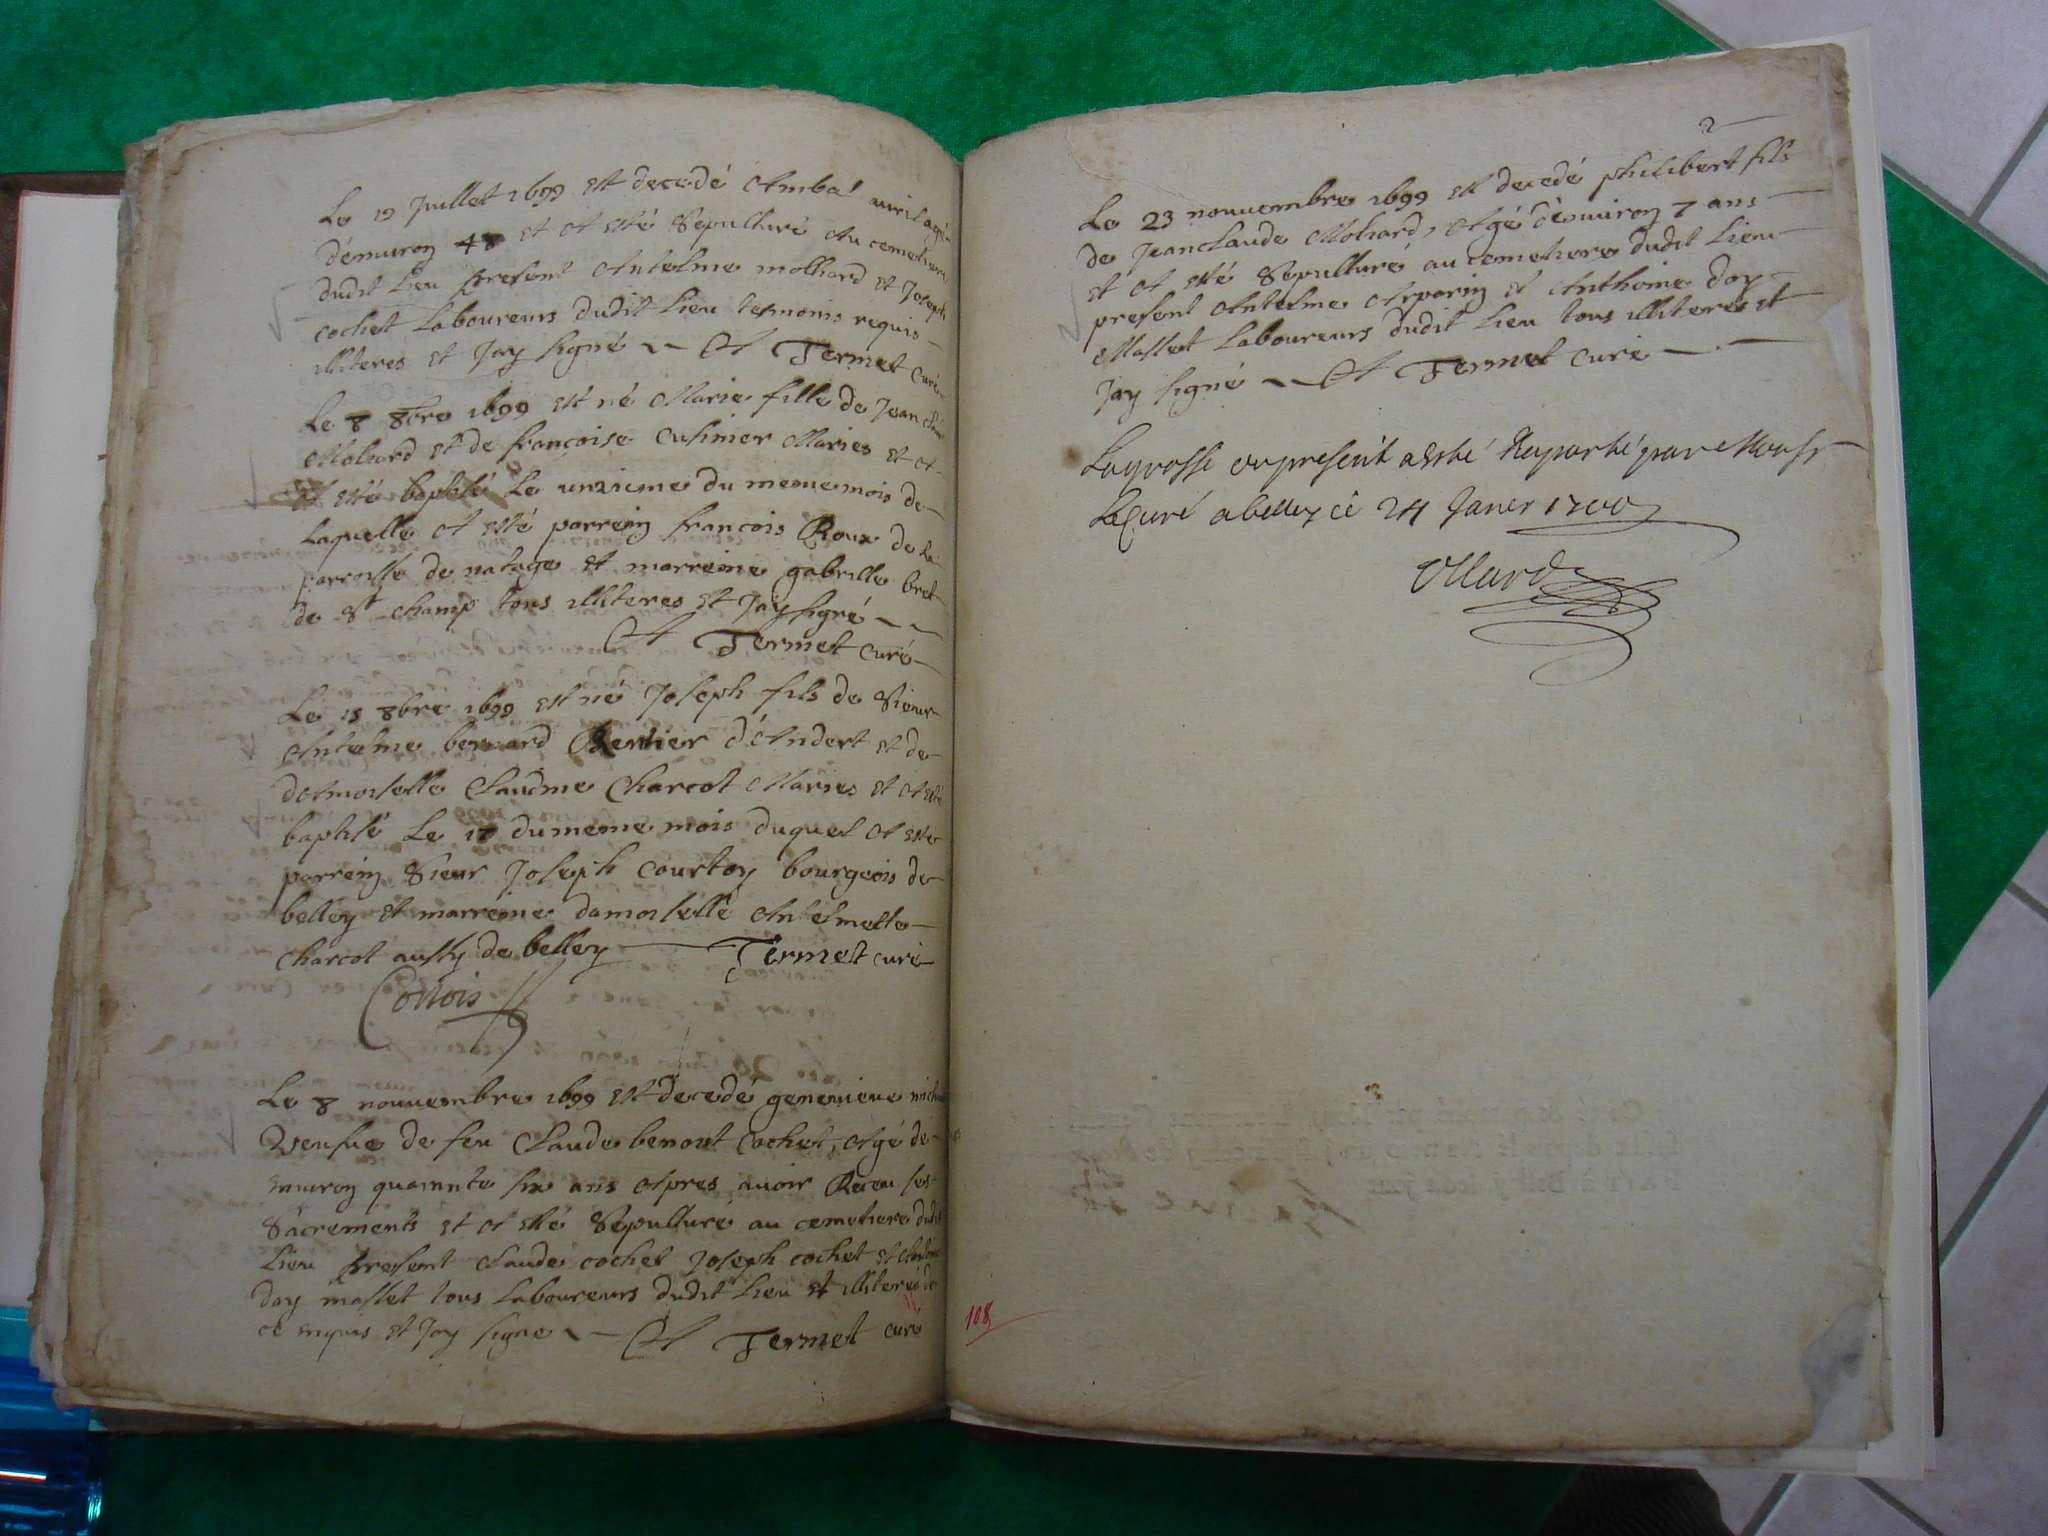 Le 19 Juillet 1699 est decedé Anibal avril agé
d'emuiron 48 et at esté sepulturé au cemetiere
dudit lieu present Antelme molliard et Joseph
cochet Laboureurs dudit Lieu temoins requis
illiteres et Jay signé A Termet curé
Le 8 8bre 1699 est né Marie fille de Jean claude
Moliard et de francoise Cusinier Maries et at
esté baptisé Le unzieme du meme mois de
Laquelle at esté parrein francois Roux de La
parroisse de natage et marreine gabrielle bret
de St champ tous illiteres et Jay signé
A Termet curé
Le 15 8bre 1699 est né Joseph fils de Sieur
Antelme bernard Rentier d'Andert et de
damoiselle Claudine Charcot Maries et at esté
baptisé Le 17 du meme mois duquel at esté
parrein Sieur Joseph Courtoy bourgeois de
belley et marreine damoiselle Antelmette
Charcot aussy de belley Termet curé
Cortois
Le 8 nouuembre 1699 est decedé geneuieue
veufue de feu Claude benoit Cochet, Agé de
muiron quarante six ans Apres auoir Receu ses
Sacrements et at esté Sepulturé au cemetiere dudit
Lieu present Claude cochet Joseph cochet et Anthoine
doy masset tous Laboureurs dudit Lieu et illiteres de
ce enquis et Jay signe A Termet curé
2
Le 23 nouuembre 1699 est decedé philibert fils
de Jean Claude Moliard, Agé d'emuiron 7 ans
et at esté Sepulturé au cemetiere dudit Lieu
present Antelme Arparin et Anthoine doy
Masset Laboureurs dudit Lieu tous illiteres et
Jay signé A Termet curé
La grosse du present a esté Raporté par Monsr
Le Curé a belley ce 24 Janer 1700
108